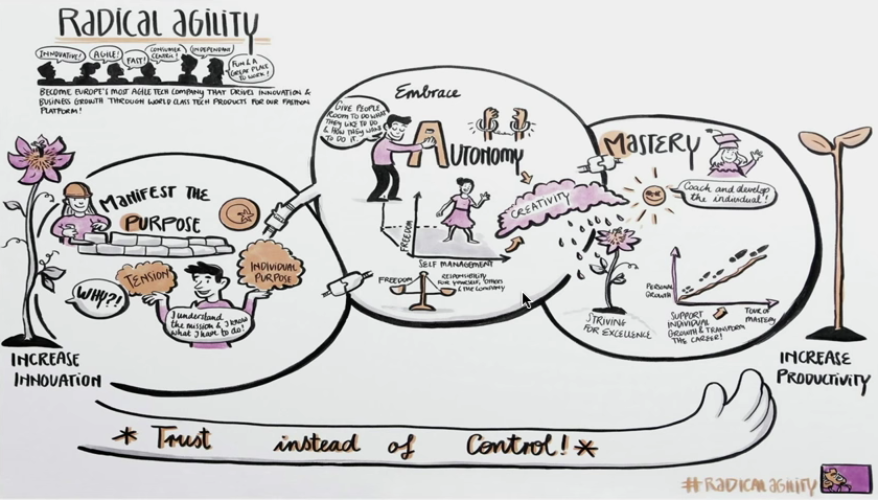 RADICAL AGILITY
INNOVATIVE!
AGILE!
FAST!
CONSUMER
CLASSIC!
INDEPENDENT
FUN & A
GREAT PLACE
TO WORK!
BECOME EUROPE'S MOST AGILE TECH COMPANY THAT DRIVES INNOVATION &
BUSINESS GROWTH THROUGH WORLD CLASS TECH PRODUCTS FOR OUR FASHION
PLATFORM!
MANIFEST THE
PURPOSE
TENSION
INDIVIDUAL
PURPOSE
WHY?!
I understand
the mission & I know
what I have to do!
INCREASE
INNOVATION
Embrace
GIVE PEOPLE
ROOM TO DO WHAT
THEY LIKE TO DO
& HOW THEY WANT
TO DO IT.
AUTONOMY
CREATIVITY
FREEDOM
SELF MANAGEMENT
FREEDOM
RESPONSIBILITY
FOR YOURSELF, OTHERS
& THE COMPANY
MASTERY
Coach and develop
the individual!
STRIVING
FOR EXCELLENCE
PERSONAL
GROWTH
SUPPORT
INDIVIDUAL
GROWTH & TRANSFORM
THE CAREER!
TOUR OF
MASTERY
INCREASE
PRODUCTIVITY
* Trust instead of Control! *
#RADICALAGILITY